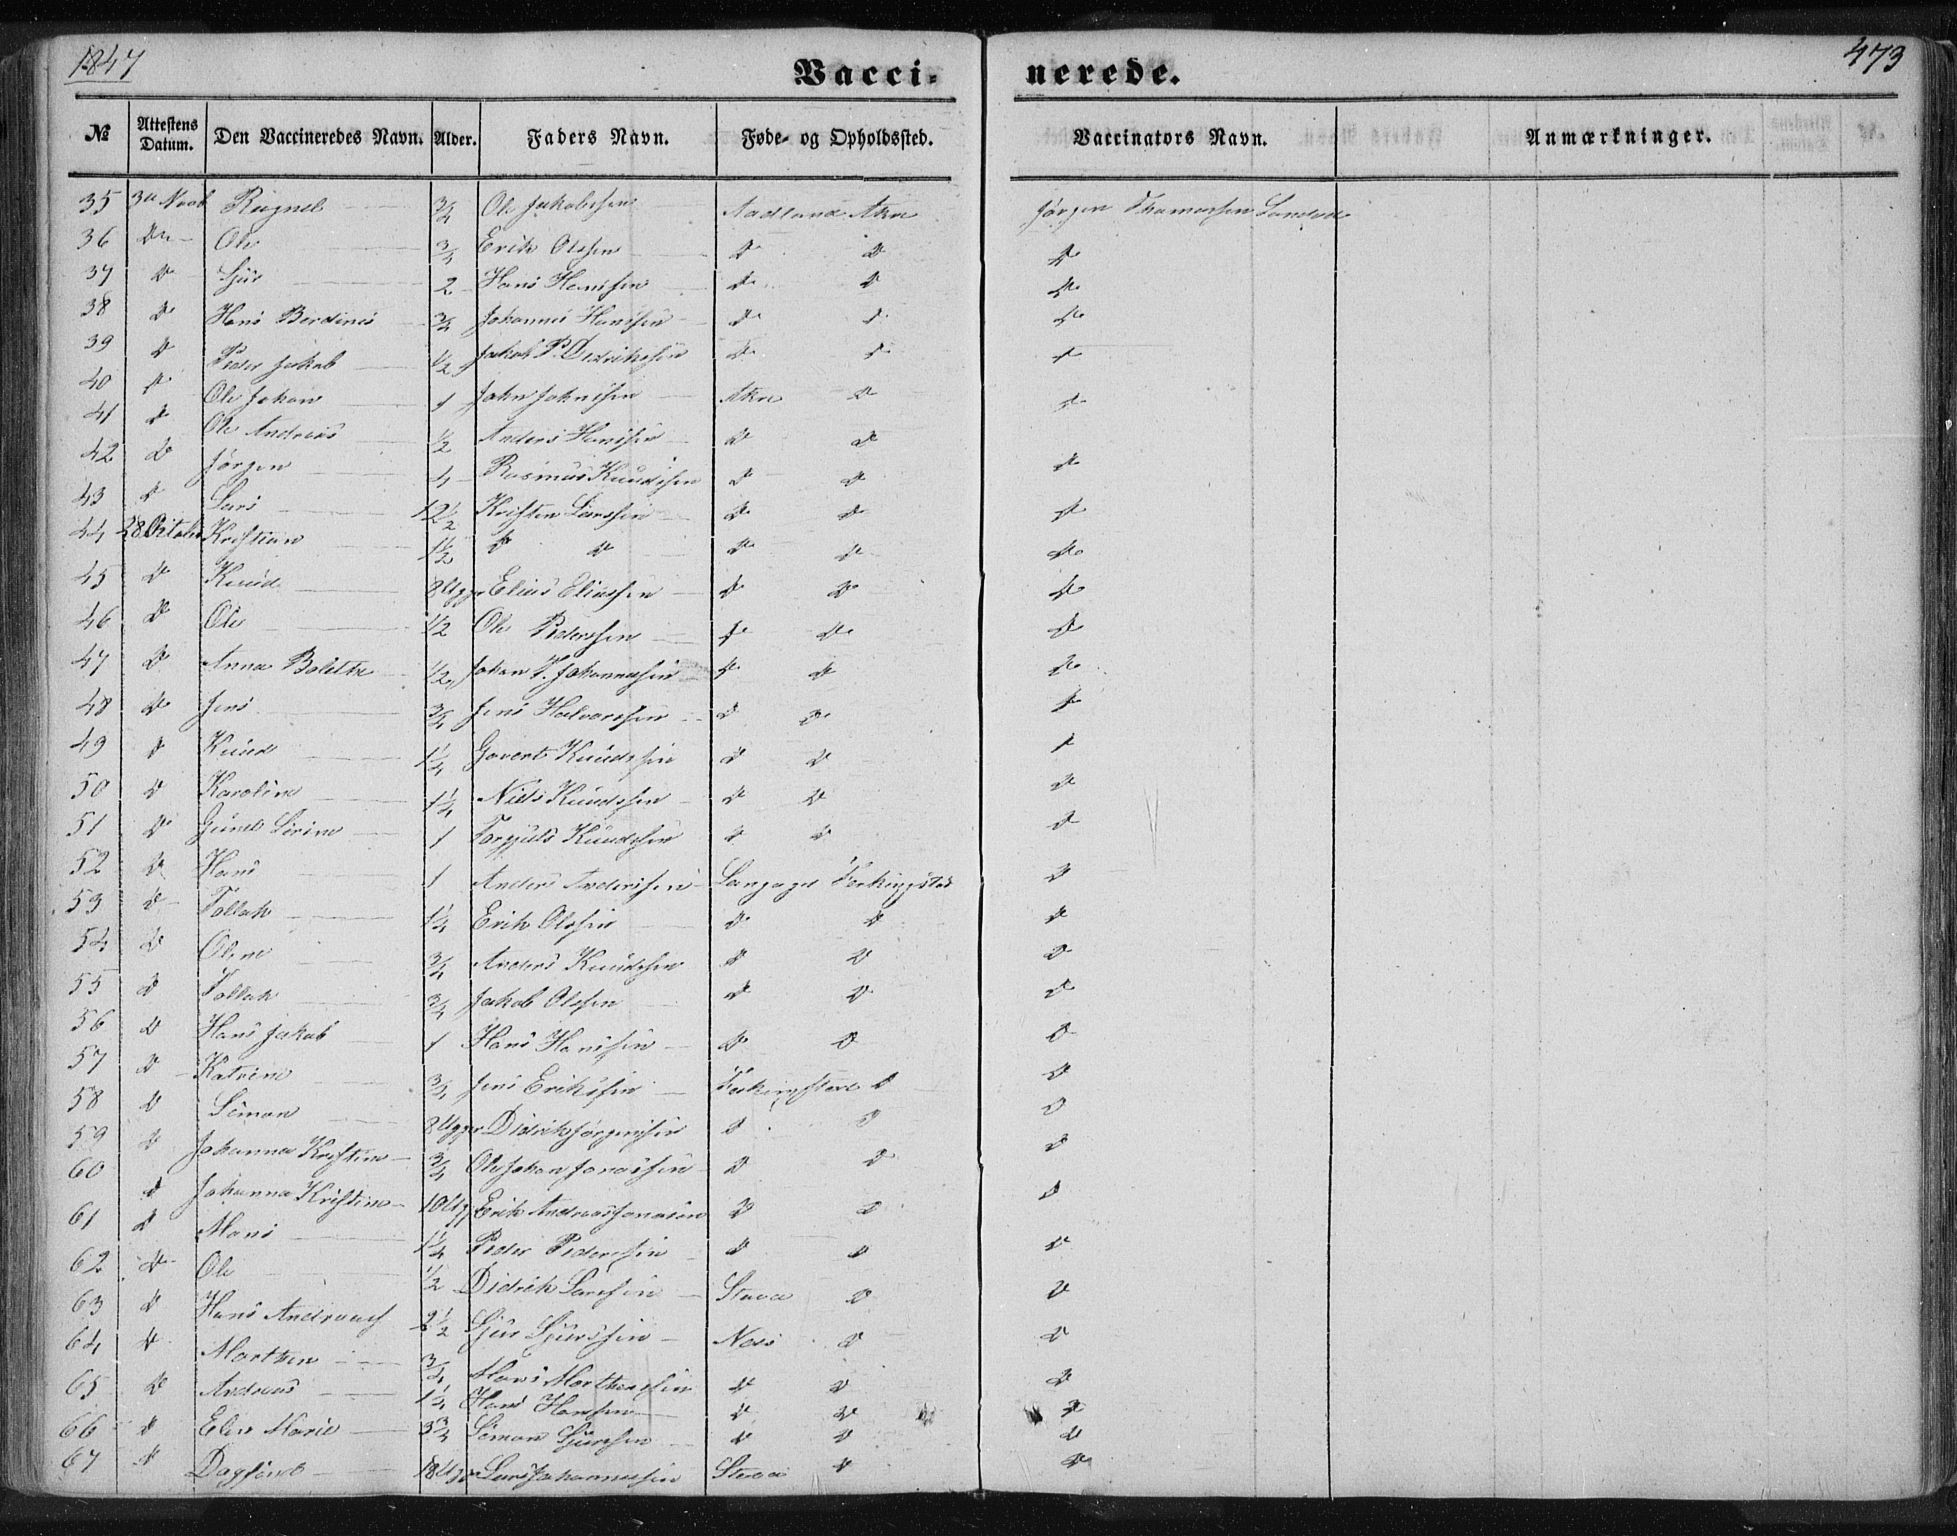 1847
473
Vacci- nerede.
№ Attestens Datum. Den Vaccineredes Navn. Alder. Faders Navn. Føde- og Opholdssted. Vaccinators Navn. Anmærkninger.
35 Ragnel 3/4 Ole Jakobsen Aadland Akre Jørgen Thomassen
36 Do Ole 3/4 Erik Olssen Do Do Do
37 Do Sjur 2 Hans Hanssen Do Do Do
38 Do Hans Berdines 3/4 Johannes Hanssen Do Do Do
39 Do Peder Jakob 1/2 Jakob P. Dedrikssen Do Do Do
40 Do Ole Johan 1 John Johnssen Akre Do Do
41 Do Ole Andreas 1/2 Anders Hanssen Do Do
42 Do Jørgen 4 Rasmus Knudssen Do Do Do
43 Do Lars 12 1/2 Kristen Larssen Do Do Do
44 28 Oktober Kristian 1 1/2 Do Do Do Do Do
45 Do Knud 8 Uger Elias Eliassen Do Do Do
46 Do Ole 1/2 Ole Pederssen Do Do Do
47 Do Anna Bolette 1/2 Johan J. Johannessen Do Do Do
48 Do Jens 3/4 Jens Halvorssen Do Do Do
49 Do Knud 1 1/4 Govert Knudssen Do Do Do
50 Do Karoline 1 1/4 Niels Knudssen Do Do Do
51 Do Gunel Serine 1 Torgjuls Knudssen Do Do Do
52 Do Hans 1 Anders Anderssen Langager Ferkingstad Do
53 Do Tollak 1 1/4 Erik Olssen Do Do Do
54 Do Olene 3/4 Anders Knudssen Do Do Do
55 Do Tollak 3/4 Jakob Olssen Do Do Do
56 Do Hans Jakob 1 Hans Hanssen Do Do Do
57 Do Katrine 3/4 Jens Erikssen Ferkingstad Do Do
58 Do Simon 8 Uger Didrik Jørgenssen Do Do Do
59 Do Johanna Kristine 3/4 Ole Johan Jonassen Do Do Do
60 Do Johanna Kristine 10 Ug Erik Andreas Jonassen Do Do Do
61 Do Mons 1 1/4 Peder Pederssen Do Do Do
62 Do Ole 1/2 Didrik Larssen Stava Do Do
63 Do Hans Andreas 2 1/2 Sjur Sjurssen Ness Do Do
64 Do Morthen 3/4 Mons Morthenssen Do Do Do
65 Do Andreas 1 1/4 Hans Hanssen Do Do Do
66 Do Elen Marie 3 3/4 Simon Sjurssen Do Do Do
67 Do Dagfind 18 Uger Lars Johannessen Stava Do Do